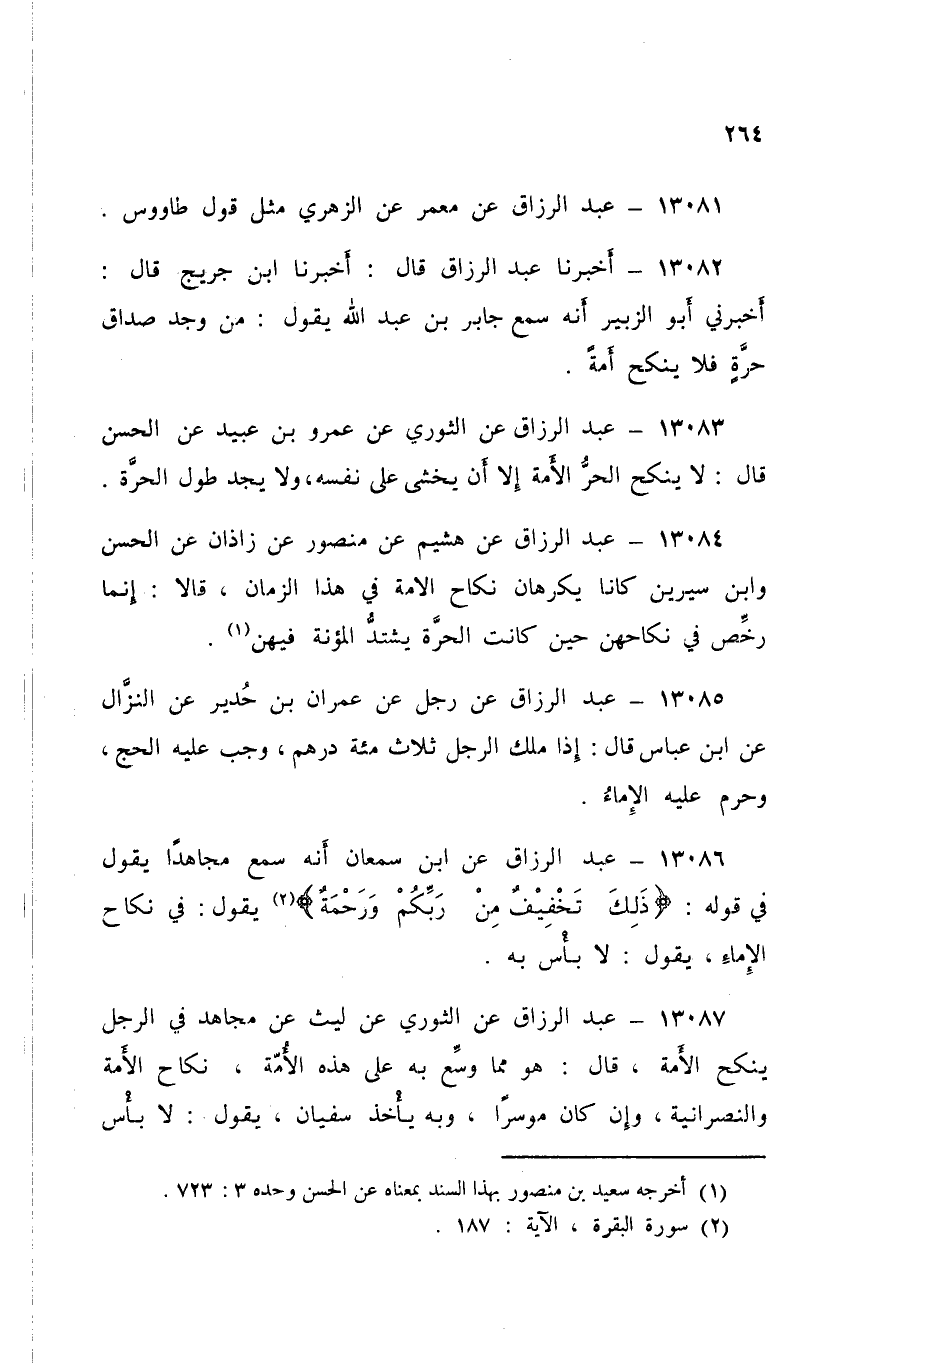 ٢٦٤
١٣٠٨١ – عبد الرزاق عن معمر عن الزهري مثل قول طاووس .
١٣٠٨٢ – أخبرنا عبد الرزاق قال : أخبرنا ابن جريج قال :
أخبرني أبو الزبير أنه سمع جابر بن عبد الله يقول : من وجد صداق
حرَّةٍ فلا ينكح أمةً .
١٣٠٨٣ – عبد الرزاق عن الثوري عن عمرو بن عبيد عن الحسن
قال : لا ينكح الحرُّ الأمة إلا أن يخشى على نفسه، ولا يجد طول الحرَّة .
١٣٠٨٤ – عبد الرزاق عن هشيم عن منصور عن زاذان عن الحسن
وابن سيرين كانا يكرهان نكاح الامة في هذا الزمان ، قالا : إنما
رخِّص في نكاحهن حين كانت الحرَّة يشتدُّ المؤنة فيهن(١) .
١٣٠٨٥ – عبد الرزاق عن رجل عن عمران بن حُدير عن النزَّال
عن ابن عباس قال : إذا ملك الرجل ثلاث مئة درهم ، وجب عليه الحج ،
وحرم عليه الإماءُ .
١٣٠٨٦ – عبد الرزاق عن ابن سمعان أنه سمع مجاهدًا يقول
في قوله : ﴿ذَلِكَ تَخْفِيْفٌ مِنْ رَبِّكُمْ وَرَحْمَةٌ﴾(٢) يقول : في نكاح
الإماءِ ، يقول : لا بأْس به .
١٣٠٨٧ – عبد الرزاق عن الثوري عن ليث عن مجاهد في الرجل
ينكح الأَمة ، قال : هو مما وسِّع به على هذه الأُمّة ، نكاح الأَمة
والنصرانية ، وإن كان موسرًا ، وبه يأْخذ سفيان ، يقول : لا بأْس
(١) أخرجه سعيد بن منصور بهذا السند بمعناه عن الحسن وحده ٣ : ٧٢٣ .
(٢) سورة البقرة ، الآية : ١٨٧ .